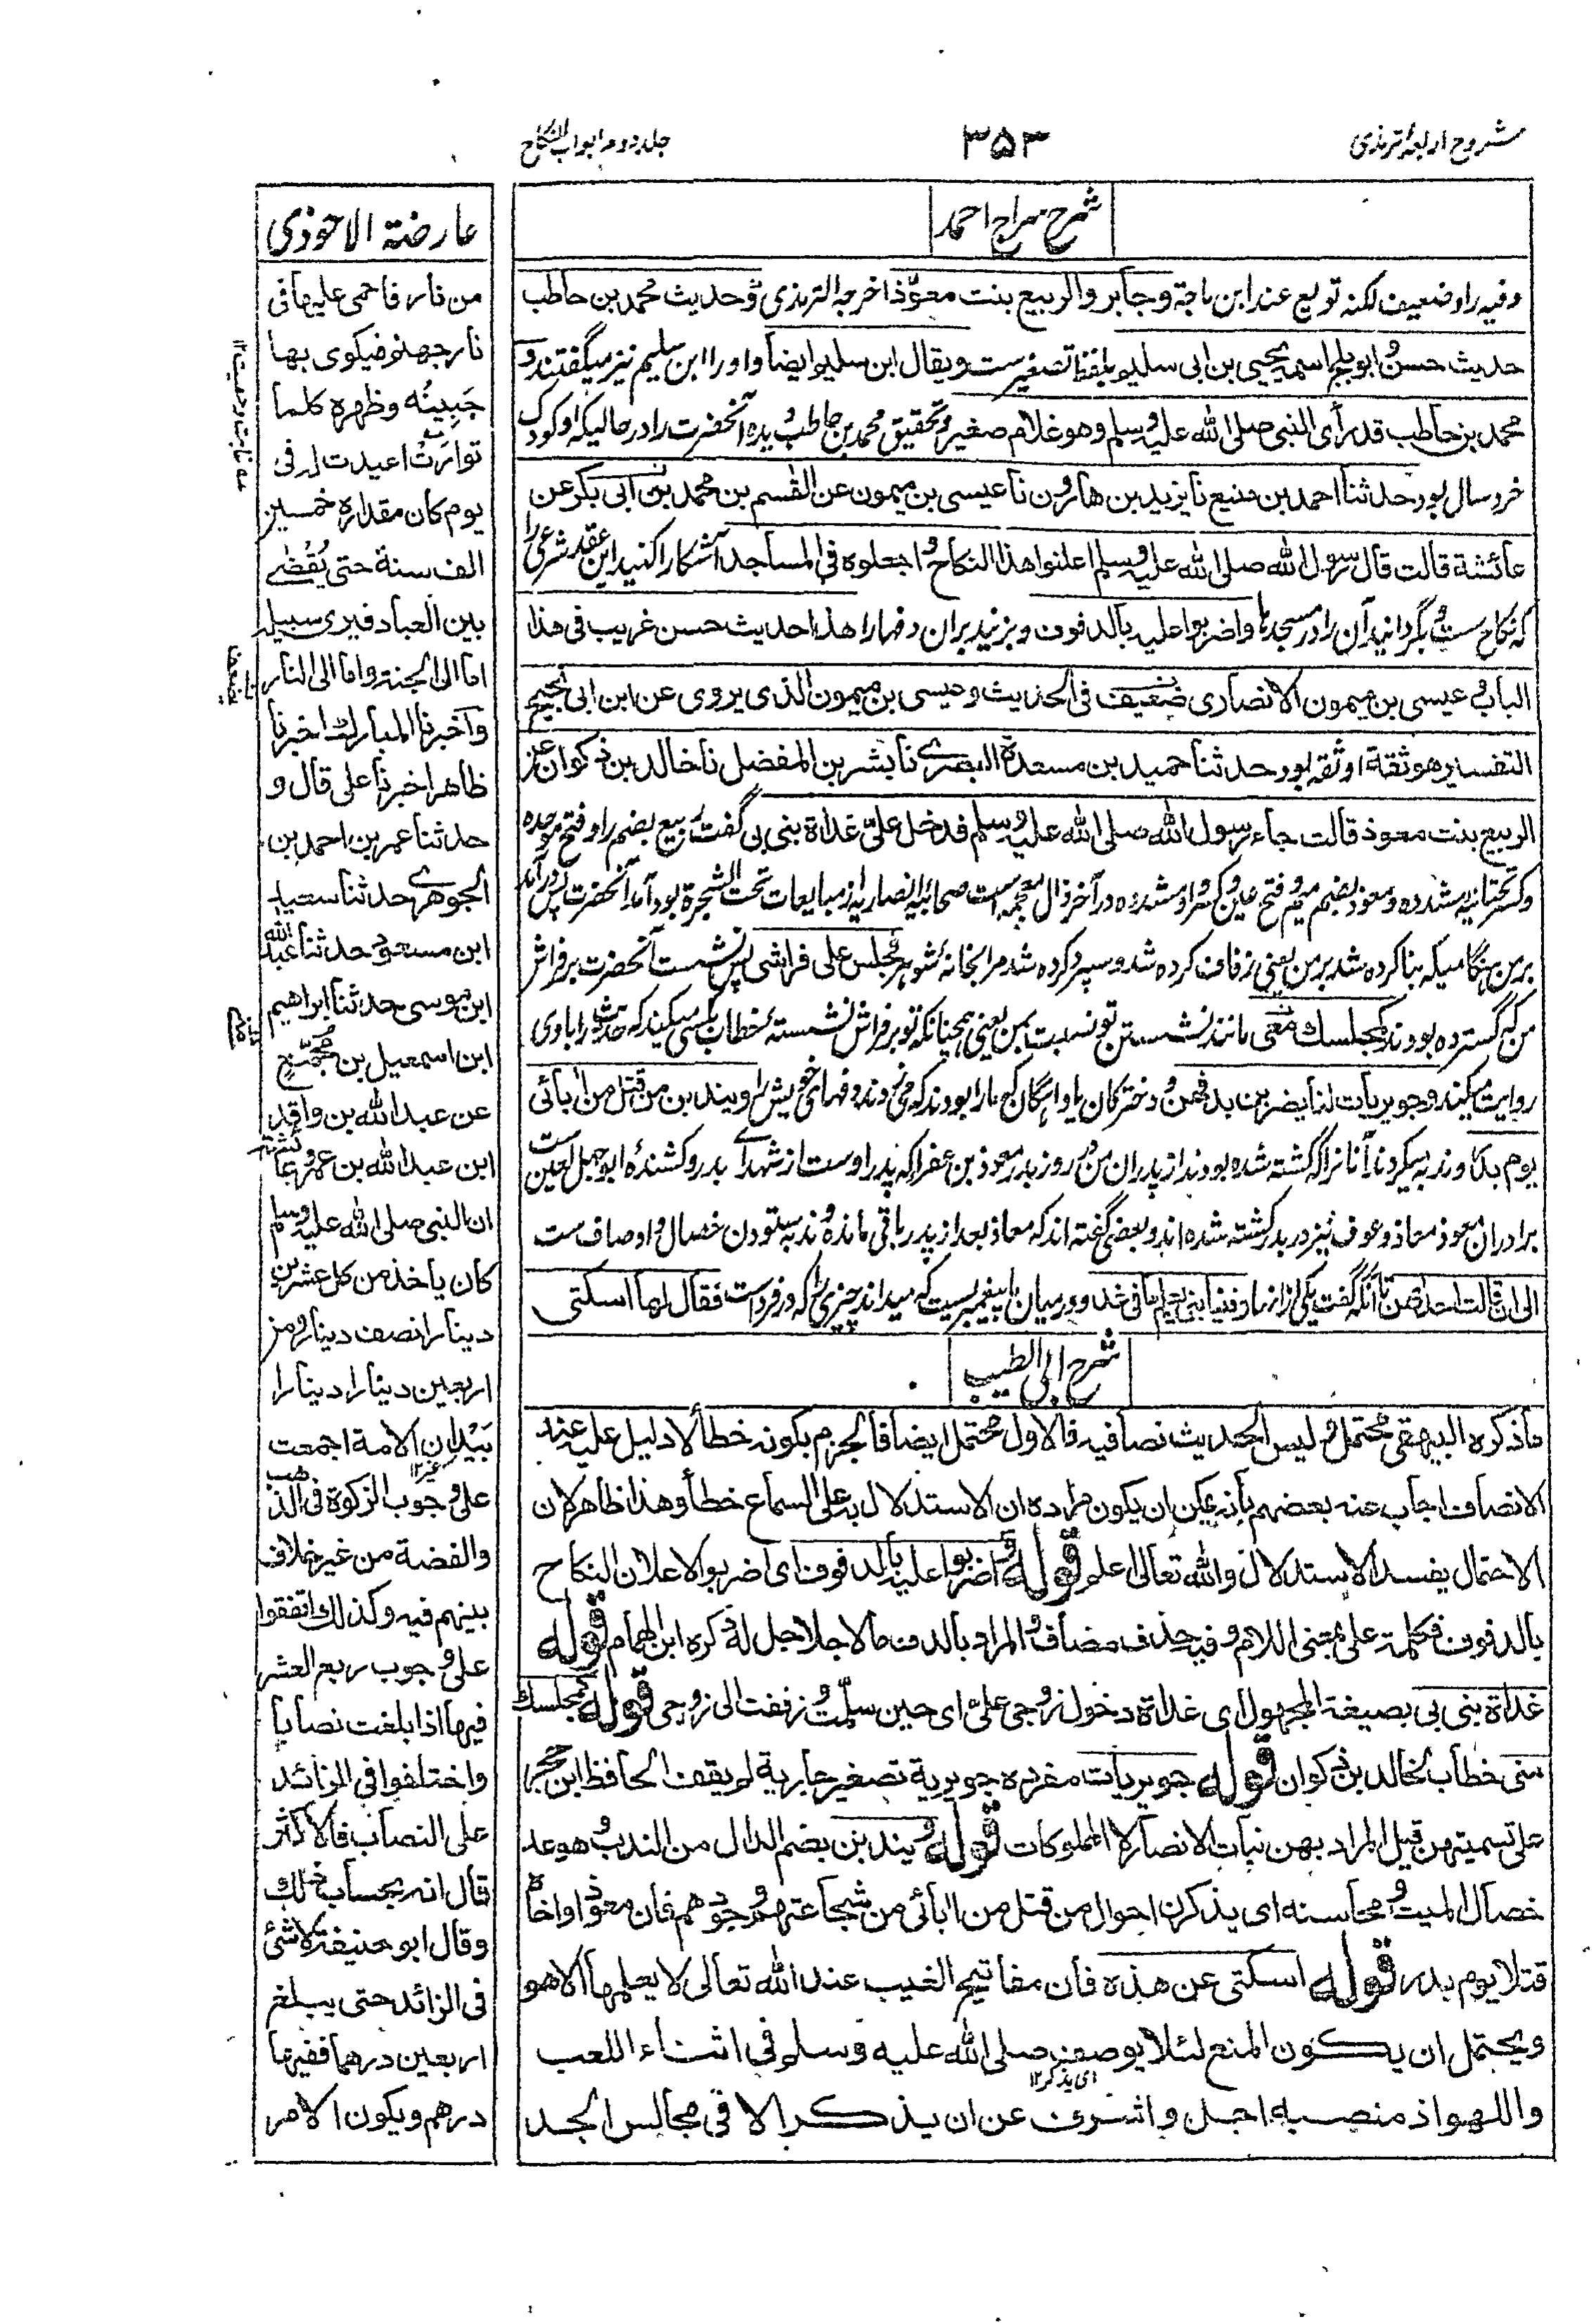 شروح اربعۂ ترمذی
۳۵۳
جلد دوم ابواب النکاح
شرح سراج احمد
وفیه راو ضعیف لکنه توبع عند ابن ماجة وجابر والربیع بنت معوّذ اخرجه الترمذی وحدیث محمد بن حاطب
حدیث حسن وابو بلج اسمه یحیی بن ابی سلیم بلفظ تصغیر ست ویقال ابن سلیم ایضا واو را ابن سلیم نیز میگفتند و
محمد بن حاطب قد رأی النبی صلی الله علیه وسلم وهو غلام صغیر و تحقیق محمد بن حاطب دیده آنحضرت را در حالیکه او کودک
خرد سال بود حدثنا احمد بن منیع نا یزید بن هارون نا عیسی بن میمون عن القسم بن محمد بن ابی بکر عن
عائشة قالت قال رسول الله صلی الله علیه وسلم اعلنوا هذا النکاح واجعلوه فی المساجد آشکارا کنید این عقد شرعی را
که نکاح ست و بگردانید آن را در مسجدها واضربوا علیه بالدفوف و بزنید بران دفها را هذا حدیث حسن غریب فی هذا
الباب و عیسی بن میمون الانصاری ضعیف فی الحدیث وعیسی بن میمون الذی یروی عن ابن ابی نجیح
التفسیر هو ثقة او ثقه بود حدثنا حمید بن مسعدة البصری نا بشر بن المفضل نا خالد بن ذکوان عن
الربیع بنت معوذ قالت جاء رسول الله صلی الله علیه وسلم فدخل علیّ غداة بنی بی گفت ربیع بضم را و فتح موحده
و کسر تحتانیه مشدده و معوذ بضم میم و فتح عین و کسر واو مشدده و در آخر ذال معجمه است صحابیه انصاریه از مبایعات تحت الشجرة بود آمد آنحضرت پس درآمد
بر من هنگامیکه بنا کرده شد بر من یعنی زفاف کرده شد و سپرد کرده شد مرا بخانۀ شوهر فجلس علی فراشی پس نشست آنحضرت بر فراش
من که گسترده بودند کمجلسک منی مانند نشستن تو نسبت بمن یعنی همچنانکه تو بر فراش نشستۀ خطاب بکسی میکند که حدیث را با وی
روایت میکند وجویریات لنا یضربن بدفهن و دخترکان یا وابستگان که ما را بودند که می‌زدند دفهای خویش را ویندبن من قتل من آبائی
یوم بدر و ندبه میکردند آنانرا که کشته شده بودند از پدران من روز بدر معوذ بن عفرا که پدر اوست از شهدای بدر و کشندۀ ابو جهل لعین ست
برادران معوذ معاذ و عوف نیز در بدر کشته شده اند و بعضی گفته اند که معاذ بعد از بدر باقی مانده و ندبه ستودن خصال و اوصاف ست
الی ان قالت احدهن تا آنکه گفت یکی از آنها وفینا نبی یعلم ما فی غد و در میان ما پیغمبریست که میداند چیزی را که در فرداست فقال لها اسکتی
شرح ابی الطیب
ما ذکره البیهقی محتمل و لیس الحدیث نصا فیه فالاول محتمل ایضا فالجزم بکونه خطأ لا دلیل علیه عند
الانصاف اجاب عنه بعضهم بأنه یمکن ان یکون مراده ان الاستدلال به علی السماع خطأ وهذا ظاهر لان
الاحتمال یفسد الاستدلال والله تعالی اعلم قوله واضربوا علیه بالدفوف ای اضربوا لاعلان النکاح
بالدفوف فکلمة علی بمعنی اللام وفیه حذف مضاف والمراد بالدف ما لا جلاجل له ذکره ابن الهمام قوله
غداة بنی بی بصیغة المجهول ای غداة دخول زوجی علیّ ای حین سلّمت وزففت الی زوجی قوله کمجلسک
منی خطاب لخالد بن ذکوان قوله جویریات مفرده جویریة تصغیر جاریة لم یقف الحافظ ابن حجر
علی تسمیتهن قیل المراد بهن بنات الانصار لا المملوکات قوله ویندبن بضم الدال من الندب وهو عد
خصال المیت ومحاسنه ای یذکرن احوال من قتل من اآبائی من شجاعتهم وجودهم فان معوذا واخاه
قتلا یوم بدر قوله اسکتی عن هذه فان مفاتیح الغیب عند الله تعالی لا یعلمها الا هو
ویحتمل ان یکون المنع لئلا یوصف صلی الله علیه وسلم فی اثناء اللعب
ای یذکر ۱۲
واللهو اذ منصبه اجل واشرف عن ان یذکر الا فی مجالس الجد
عارضة الاحوذی
من نار فاحمی علیها فی
نار جهنم فیکوی بها
جَبِینُه وظهره کلما
توارَتْ اعیدت له فی
یوم کان مقداره خمسین
الف سنة حتی یُقْضٰی
بین العباد فیری سبیله
اما الی الجنة واما الی النار
واخبرنا المبارک اخبرنا
ظاهر اخبرنا علی قال و
حدثنا عمر بن احمد بن
الجوهری حدثنا سعید
ابن مسعود حدثنا عبد الله
ابن موسی حدثنا ابراهیم
ابن اسمعیل بن مجمّع
عن عبد الله بن واقد
ابن عبد الله بن عمر وعائشة
ان النبی صلی الله علیه وسلم
کان یاخذ من کل عشرین
دینارا نصف دینار ومن
اربعین دینارا دینارا
بَیْدَ ان الامة اجمعت
غیر ۱۲
علی وجوب الزکوة فی الذهب
والفضة من غیر خلاف
بینهم فیه وکذلک اتفقوا
علی وجوب ربع العشر
فیها اذا بلغت نصابا
واختلفوا فی الزائد
علی النصاب فالاکثر
قال انه بحساب ذلک
وقال ابو حنیفة لا شئ
فی الزائد حتی یبلغ
اربعین درهما ففیها
درهم ویکون الامر